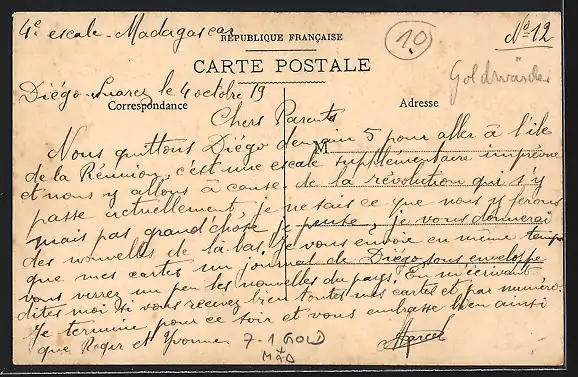 4e escale - Madagascar
10
No 12
RÉPUBLIQUE FRANÇAISE
CARTE POSTALE
Diégo-Suarez le 4 octobre 19
Correspondance
Adresse
Chers Parents
M
Nous quittons Diégo demain 5 pour aller à l'ile
de la Réunion, c'est une escale supplémentaire imprévue
et nous y allons à cause de la révolution qui s'y
passe actuellement, je ne sais ce que nous y ferons
mais pas grand chose je pense, je vous donnerai
des nouvelles de là-bas. Je vous envoie en même temps
que mes cartes un journal de Diégo sous enveloppe
vous verrez un peu les nouvelles du pays. En m'écrivant,
dites moi si vous recevez bien toutes mes cartes et par numéro.
Je termine pour ce soir et vous embrasse bien ainsi
que Roger et Yvonne
Marcel
7-1 GOLD
MAD